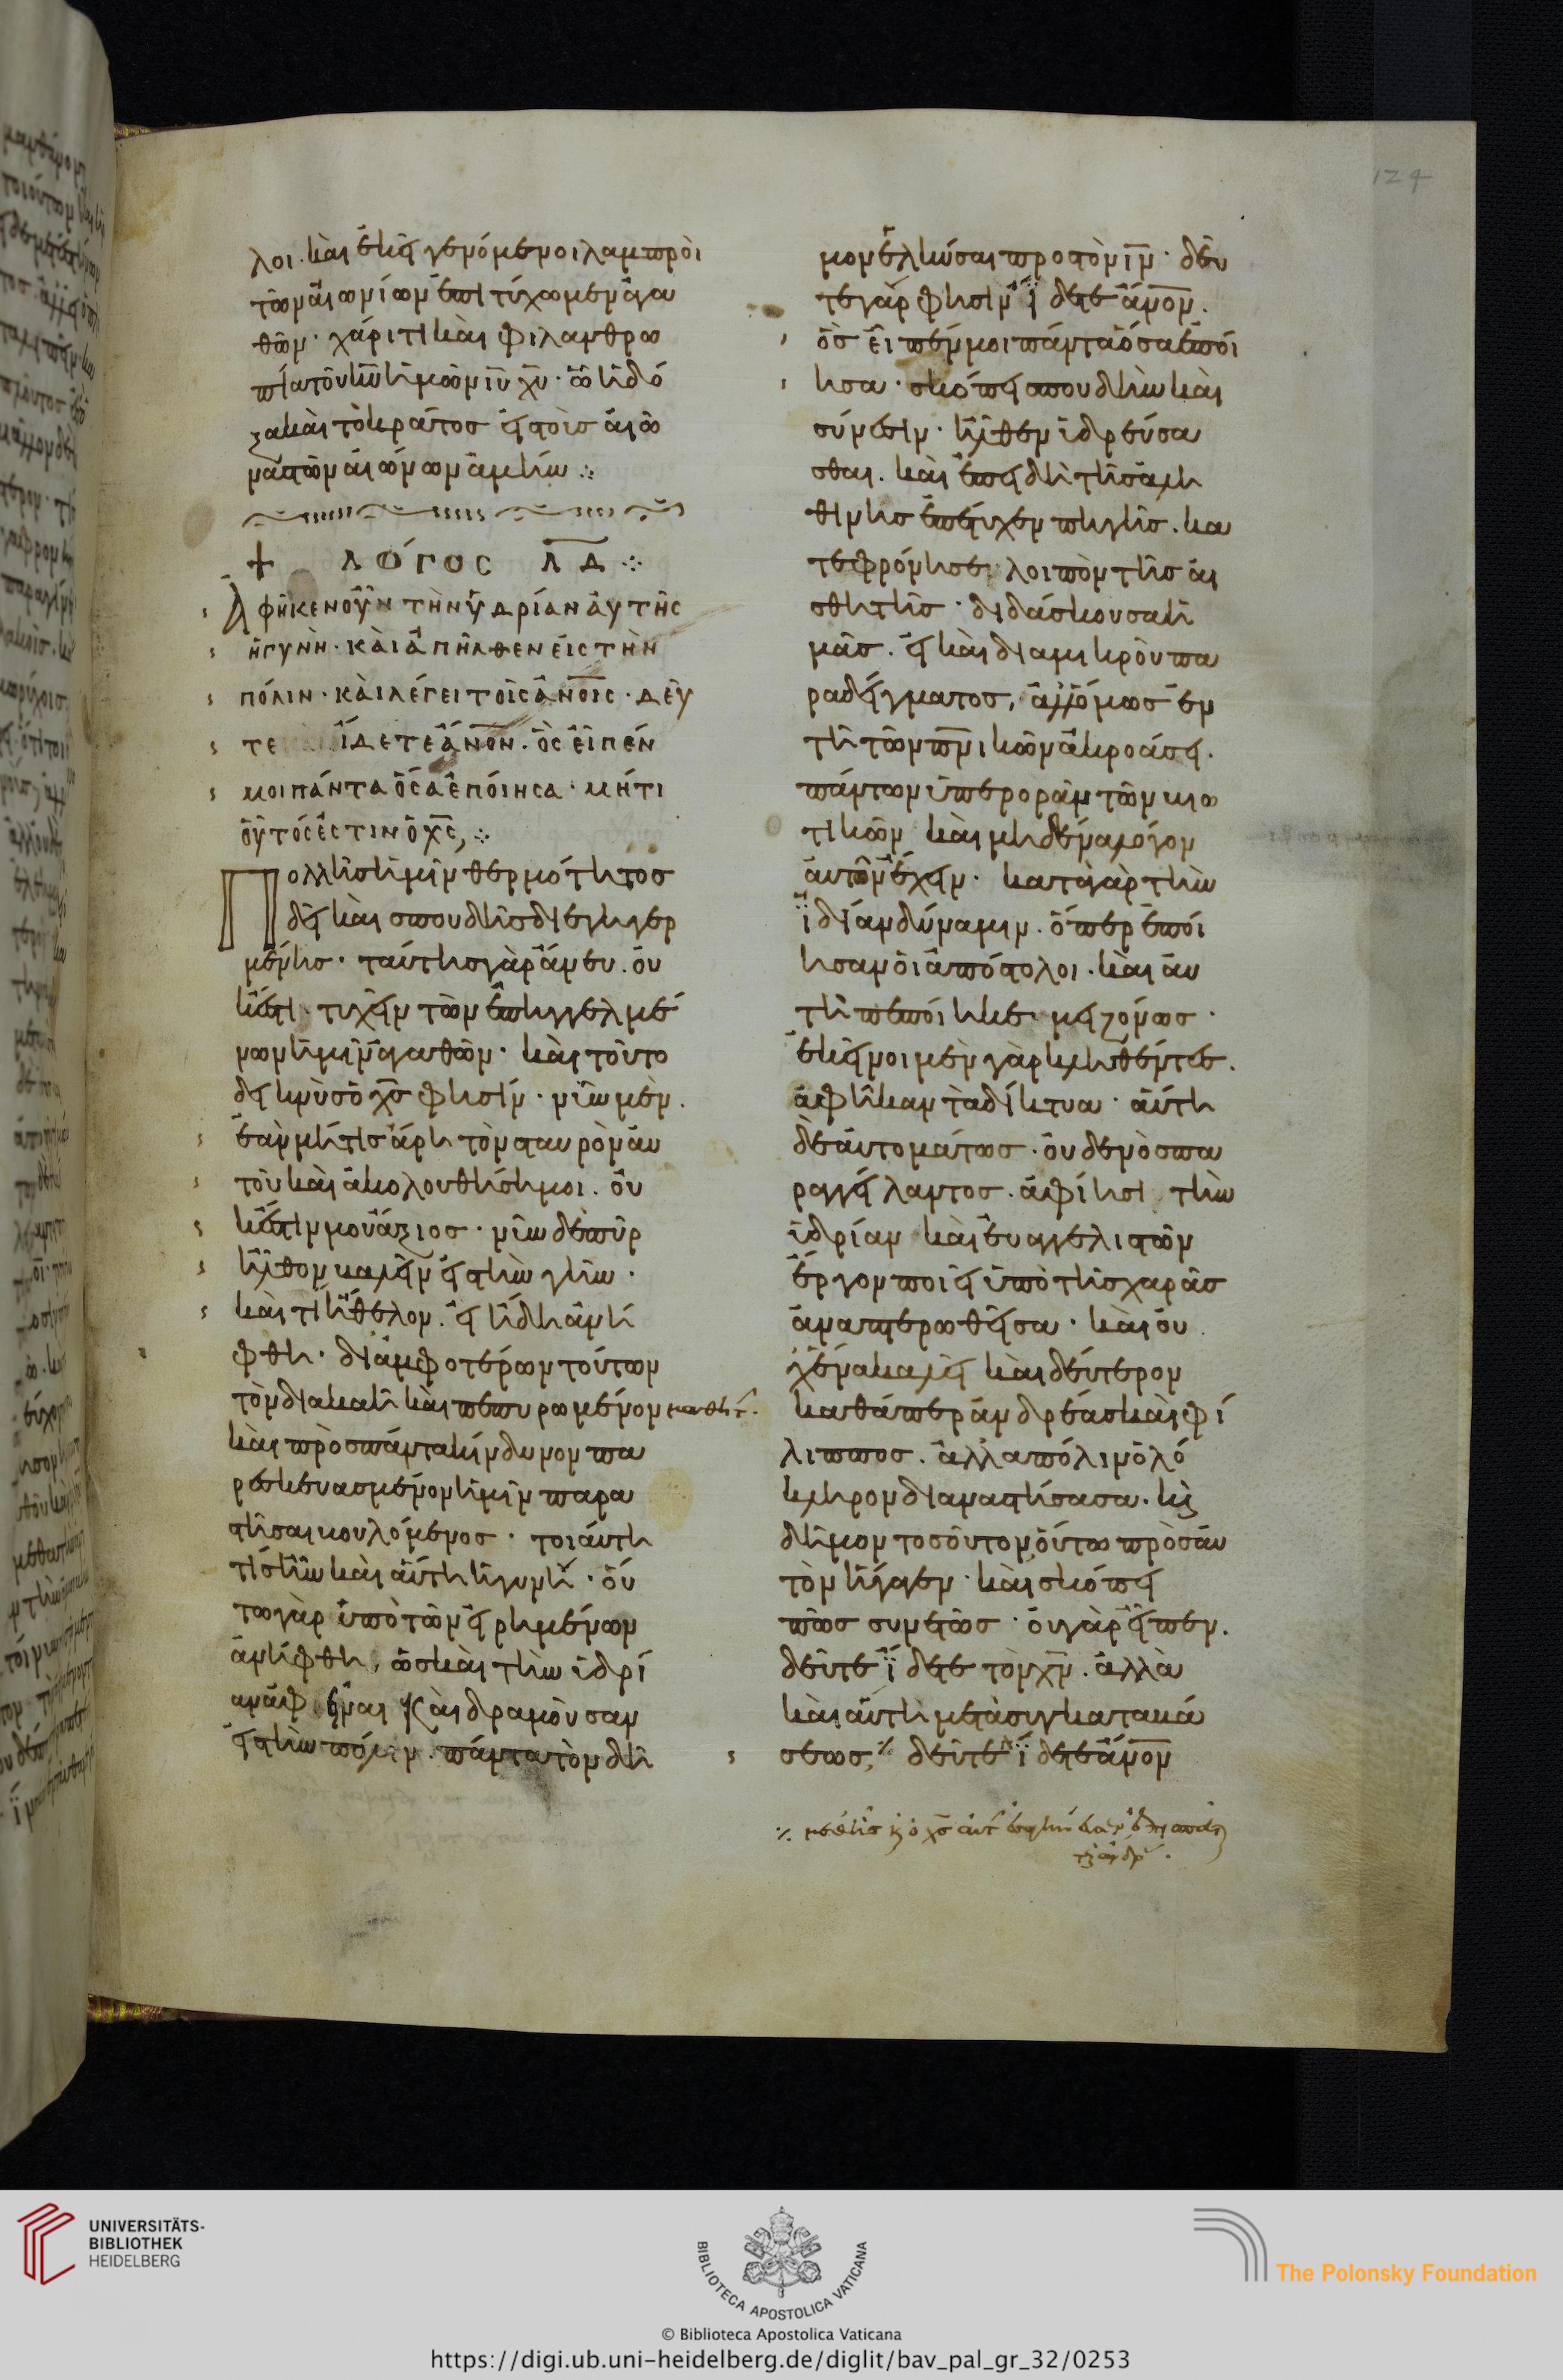 124
λοι. καὶ ἐκεῖ γενόμενοι λαμπροὶ
τῶν αἰωνίων ἐπιτύχωμεν ἀγα
θῶν· χάριτι καὶ φιλανθρω
πία τοῦ κῦ ἡμῶν ἰῦ χῦ· ὧ ἡ δό
ξα καὶ τὸ κράτος εἰς τοὺς αἰῶ
νας τῶν αἰώνων ἀμήν ⁘
+ ΛΌΓΟC Λ̅Δ̅ ⁘
ἈΦῆΚΕΝ ΟὖΝ ΤῊΝ ὙΔΡΊΑΝ ΑὐΤῆC
ἩΓΥΝῊ· ΚΑῚ ἈΠῆΛΘΕΝ ΕἸC ΤῊΝ
ΠΌΛΙΝ· ΚΑῚ ΛΈΓΕΙ ΤΟῖC ἈΝΟΙC· ΔΕῦ
ΤΕ ἼΔΕΤΕ ἌΝΟΝ. ὋC ΕἾΠΕΝ
ΜΟΙ ΠΆΝΤΑ ὍCΑ ἘΠΟΊΗCΑ· ΜΉΤΙ
ΟὟΤΌC ἘCΤΙΝ Ὁ ΧC, ⁘
Πολλῆς ἡμῖν θερμότητος
δεῖ καὶ σπουδῆς διεγηγερ
μένης· ταύτης γὰρ ἄνευ. οὐ
κ ἔστι· τυχεῖν τῶν ἐπηγγελμέ
νων ἡμῖν ἀγαθῶν· καὶ τοῦτο
δεικνὺς ὁ χς φησίν· νῦν μὲν.
ἐὰν μή τις ἄρη τὸν σταυρὸν αὐ
τοῦ καὶ ἀκολουθήση μοι. οὐ
κ ἔστιν μου ἄξιος· νῦν δὲ πῦρ
ἦλθον βαλεῖν εἰς τὴν γῆν·
καὶ τί ἤθελον. εἰ ἤδη ἀνή
φθη· δι ἀμφοτέρων τούτων
τὸν διακαῆ καὶ πεπυρωμένον μαθητ.
καὶ πρὸς πάντα κίνδυνον πα
ρεσκευασμένον ἡμῖν παρα
στῆσαι βουλόμενος· τοιαύτη
τίς ἦν καὶ αὕτη ἡ γυνή· οὕ
τω γὰρ ὑπὸ τῶν εἰρημένων
ἀνήφθη, ὡς καὶ τὴν ὑδρί
αν ἀφεῖναι καὶ δραμοῦσαν
εἰς τὴν πόλιν. πάντα τὸν δῆ
μον ἑλκῦσαι πρὸς τὸν ἰν· δεῦ
τε γάρ φησιν ἴδετε ἄνον.
ὃς εἶπέν μοι πάντα ὅσα ἐποί
ησα· σκόπει σπουδὴν καὶ
σύνεσιν· ἦλθεν ὑδρεύσα
σθαι. καὶ ἐπειδὴ τῆς ἀλη
θινῆς ἐπέτυχεν πηγῆς. κα
τεφρόνησε λοιπὸν τῆς αἰ
σθητῆς· διδάσκουσα ἡ
μᾶς. εἰ καὶ διὰ μικροῦ πα
ραδείγματος, ἀλλ' ὅμως ἐν
τῆ τῶν πνικῶν ἀκροάσει.
πάντων ὑπερορᾶν τῶν βιω
τικῶν καὶ μηδένα λόγον
αὐτῶν ἔχειν· κατὰ γὰρ τὴν
ἰδίαν δύναμιν. ὅπερ ἐποί
ησαν οἱ ἀπόστολοι. καὶ αὕ
τη πεποίηκε μειζόνως·
ἐκεῖνοι μὲν γὰρ κληθέντες.
ἀφῆκαν τὰ δίκτυα· αὕτη
δὲ αὐτομάτως· οὐδενὸς πα
ραγγείλαντος. ἀφίησι τὴν
ὑδρίαν καὶ εὐαγγελιστῶν
ἔργον ποιεῖ ὑπὸ τῆς χαρᾶς
ἀναπτερωθεῖσα· καὶ οὐ
χ ἕνα καλεῖ καὶ δεύτερον
καθάπερ ἀνδρέας καὶ φί
λιππος. ἀλλὰ πόλιν ὁλό
κληρον διαναστήσασα. κ
δῆμον τοσοῦτον οὕτω πρὸς αὐ
τὸν ἤγαγεν· καὶ σκόπει
πῶς συνετῶς· οὐ γὰρ εἶπεν.
δεῦτε ἴδετε τὸν χν. ἀλλὰ
καὶ αὐτὴ μετὰ συγκαταβά
σεως, ⁒ δεῦτε ἴδετε ἄνον
UNIVERSITÄTS-
BIBLIOTHEK
HEIDELBERG
BIBLIOTECA APOSTOLICA VATICANA
The Polonsky Foundation
© Biblioteca Apostolica Vaticana
https://digi.ub.uni-heidelberg.de/diglit/bav_pal_gr_32/0253